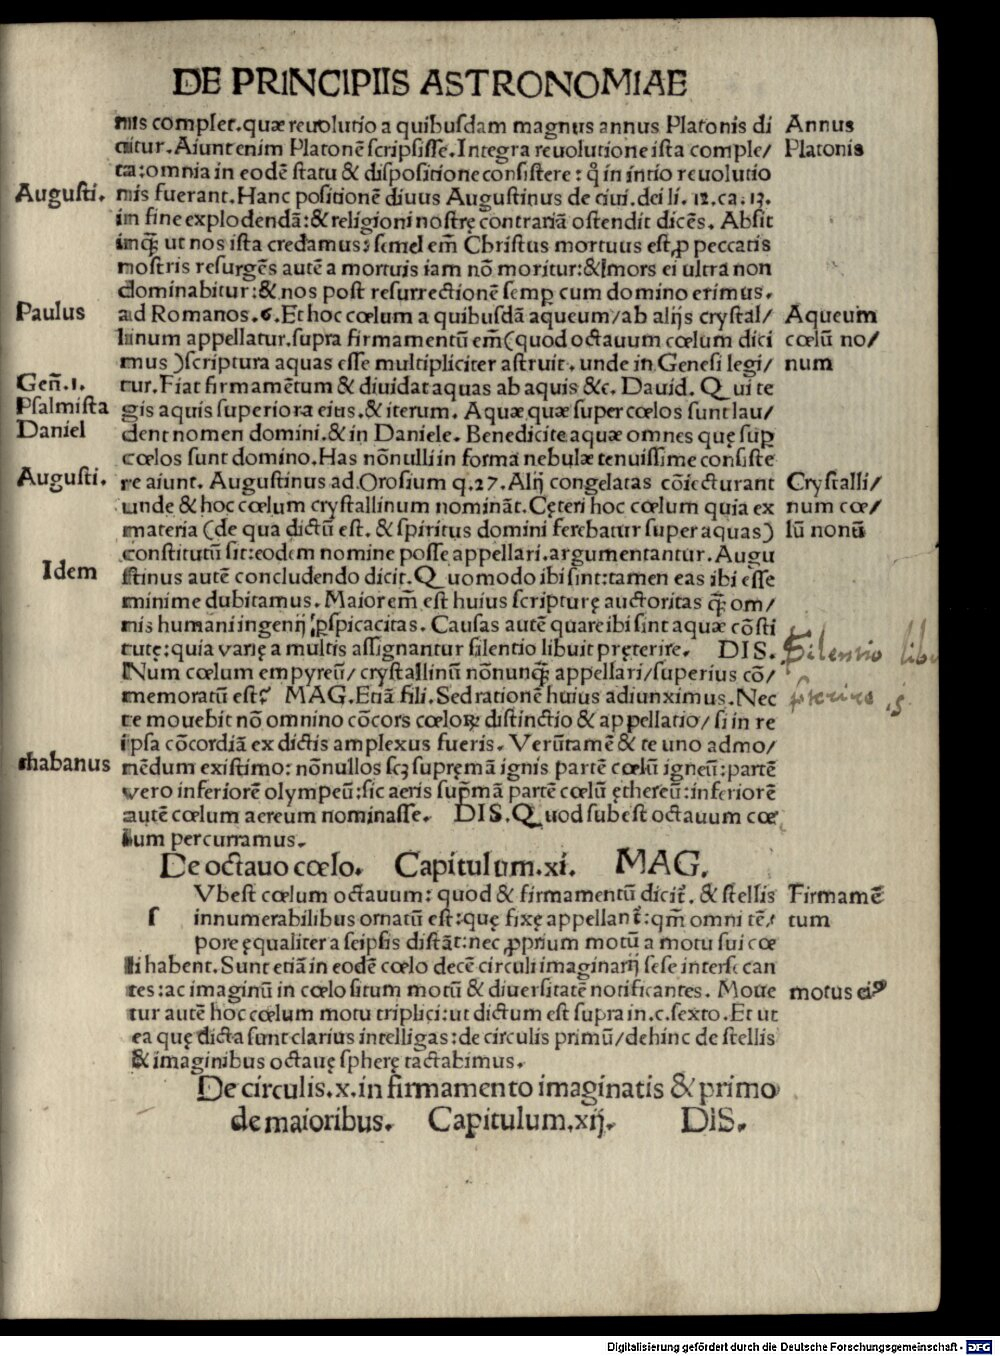 DE PRINCIPIIS ASTRONOMIAE
niis complet. quæ reuolutio a quibusdam magnus annus Platonis di
Annus
citur. Aiunt enim Platonē scripsisse. Integra reuolutione ista comple/
Platonis
ta: omnia in eodē statu & dispositione consistere: q̄ in intio reuolutio
Augusti.
nis fuerant. Hanc positionē diuus Augustinus de ciui. dei li. 12. ca. 13.
im fine explodendā: & religioni nostrę contrariā ostendit dicēs. Absit
inq̄ ut nos ista credamus: semel em̄ Christus mortuus est, ꝓ peccatis
nostris resurgēs autē a mortuis iam nō moritur: & mors ei ultra non
dominabitur: & nos post resurrectionē semꝑ cum domino erimus.
Paulus
ad Romanos. 6. Et hoc cœlum a quibusdā aqueum/ab alijs crystal/
Aqueum
linum appellatur. supra firmamentū em̄ (quod octauum cœlum dici
cœlū no/
mus) scriptura aquas esse multipliciter astruit. unde in Genesi legi/
num
Geñ. 1.
tur. Fiat firmamētum & diuidat aquas ab aquis &c. Dauid. Qui te
Psalmista
gis aquis superiora eius. & iterum. Aquæ quæ super cœlos sunt lau/
Daniel
dent nomen domini. & in Daniele. Benedicite aquæ omnes quę suꝑ
cœlos sunt domino. Has nōnulli in forma nebulæ tenuissime consiste
Augusti.
re aiunt. Augustinus ad Orosium q. 27. Alij congelatas cōiecturant
Crystalli/
unde & hoc cœlum crystallinum nomināt. Cęteri hoc cœlum quia ex
num cœ/
materia (de qua dictū est. & spiritus domini ferebatur super aquas)
lū nonū
constitutū sit: eodem nomine posse appellari. argumentantur. Augu
Idem
stinus autē concludendo dicit. Quomodo ibi sint: tamen eas ibi esse
minime dubitamus. Maior em̄ est huius scripturę auctoritas q̄ om/
nis humani ingenij ꝑspicacitas. Causas autē quare ibi sint aquæ cōsti
tutę: quia varię a multis assignantur silentio libuit pręterire. DIS.
Silentio libu
Num cœlum empyreū/crystallinū nōnunq̄ appellari/superius cō/
memoratū est? MAG. Etiā fili. Sed rationē huius adiunximus. Nec
te mouebit nō omnino cōcors cœloꝝ distinctio & appellatio/si in re
ipsa cōcordiā ex dictis amplexus fueris. Verūtamē & te uno admo/
rhabanus
nēdum existimo: nōnullos scꝫ supręmā ignis partē cœlū igneū: partē
vero inferiorē olympeū: sic aeris supm̄ā partē cœlū ęthereū: inferiorē
autē cœlum aereum nominasse. DIS. Quod subest octauum cœ
lum percurramus.
De octauo cœlo. Capitulum. xi. MAG.
Vbest cœlum octauum: quod & firmamentū dicit̃. & stellis
Firmamē
s innumerabilibus ornatū est: quę fixę appellant̃: qm̄ omni tē/
tum
pore ęqualiter a seipsis distāt: nec ꝓprium motū a motu sui cœ
li habent. Sunt etiā in eodē cœlo decē circuli imaginarij sese interse can
tes: ac imaginū in cœlo situm motū & diuersitatē notificantes. Moue
motus eiꝰ
tur autē hoc cœlum motu triplici: ut dictum est supra in. c. sexto. Et ut
ea quę dicta sunt clarius intelligas: de circulis primū/dehinc de stellis
& imaginibus octauę spherę tractabimus.
De circulis. x. in firmamento imaginatis & primo
de maioribus. Capitulum. xij. DIS.
Digitalisierung gefördert durch die Deutsche Forschungsgemeinschaft - DFG